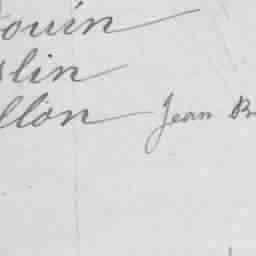 ouin
lin
llon Jean B